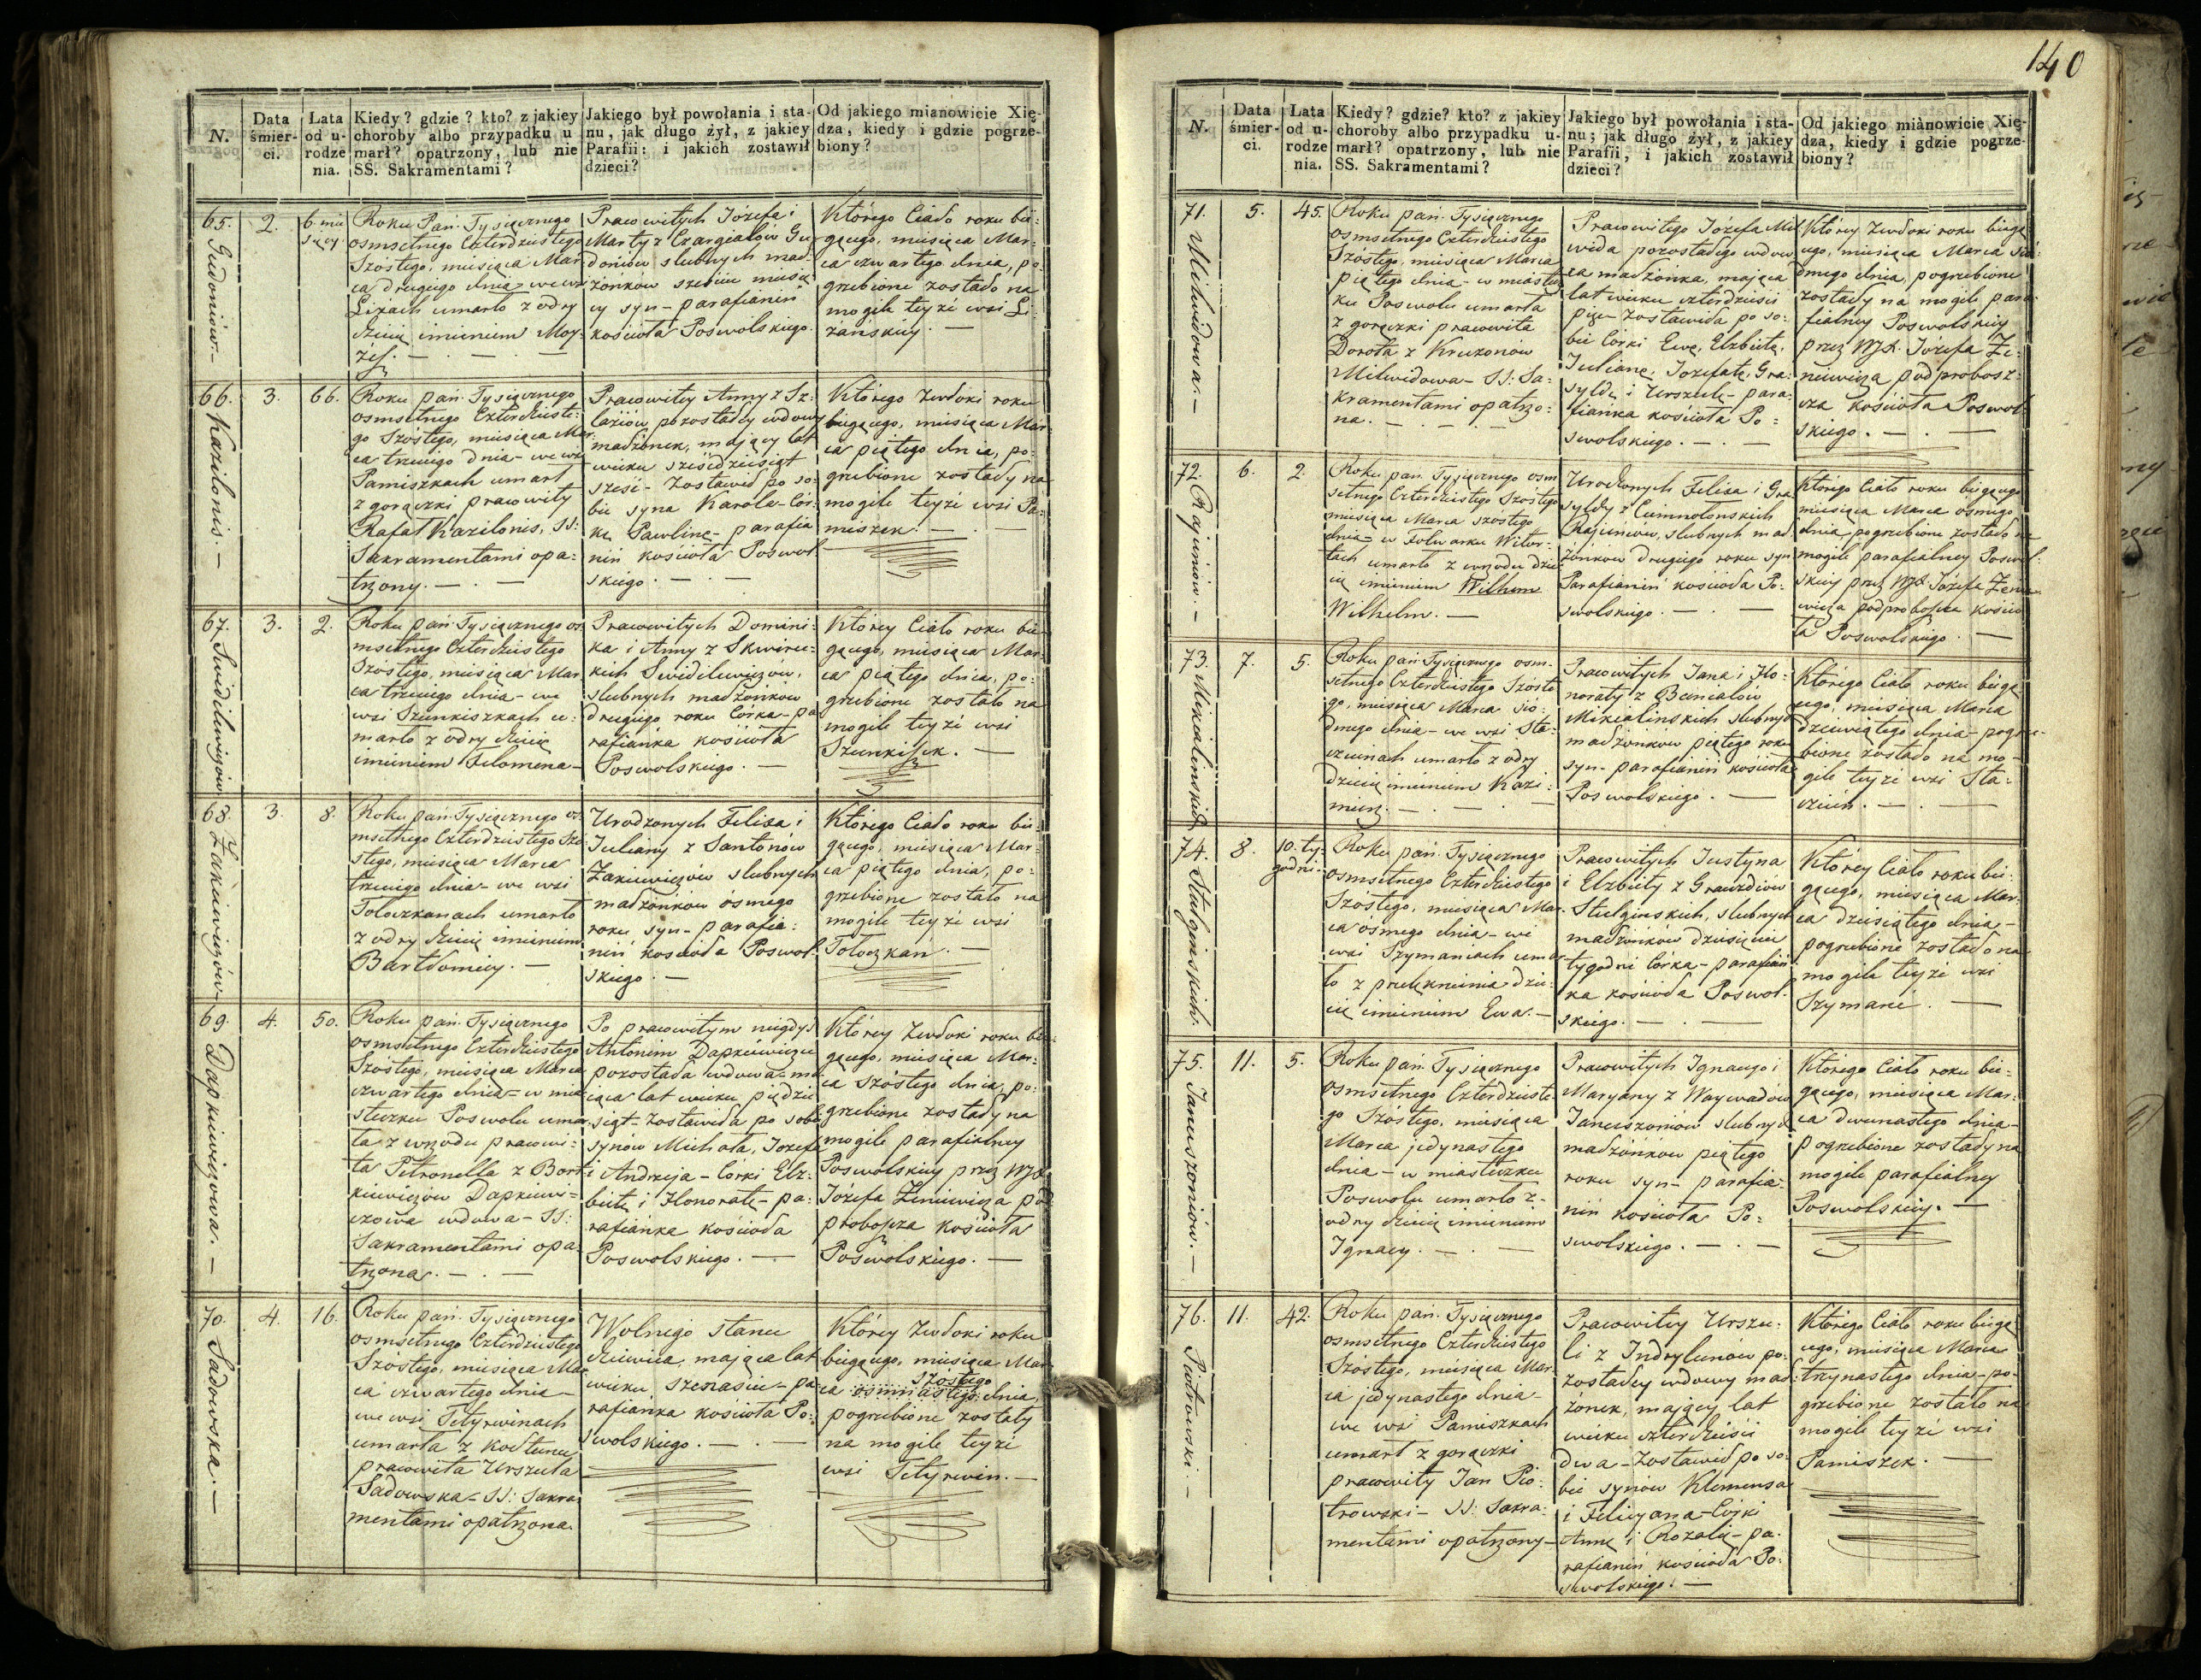 140
N.
Data śmier-
ci.
Lata
od u-
rodze
nia.
Kiedy? gdzie? kto? z jakiey
choroby albo przypadku u
marł? opatrzony, lub nie
SS. Sakramentami?
Jakiego był powołania i sta-
nu, jak długo żył, z jakiey
Parafii: i jakich zostawił
dzieci?
Od jakiego mianowicie Xię-
dza, kiedy i gdzie pogrze-
biony?
65.
Gudoniów.—
2.
6. mie
sięcy
Roku Pań. Tysiącznego
osmsetnego Czterdziestego
Szóstego, miesiąca Mar-
ca drugiego dnia – we wsi
Liżach umarło z odry
dziecię imieniem Moy-
żesz. — . —
Pracowitych Józefa i
Marty z Czargiałów Gu-
doniów slubnych mał-
żonków sześciu miesię-
cy syn – parafianin
kościoła Poswolskiego.
Którego Ciało roku bie-
gącego, miesiąca Mar-
ca czwartego dnia, po-
grzebione zostało na
mogile teyże wsi Li-
żańskiey. —
66.
Kazilonis.—
3.
66.
Roku pań. Tysiącznego
osmsetnego Czterdzieste-
go Szóstego, miesiąca Mar
ca trzeciego dnia – we wsi
Pamiszkach umarł
z gorączki pracowity
Rafał Kazilonis, SS:
Sakramentami opa-
trzony. — . —
Pracowitey Anny z Sz:
łaziów pozostałey wdowy
małżonek, mający lat
wieku sześćdziesiąt
sześć – Zostawił po so-
bie syna Karola – Cór-
kę Pawlinę – parafia
nin kościoła Poswol-
skiego. — . —
Którego Zwłoki roku
biegącego, miesiąca Mar-
ca piątego dnia, po-
grzebione zostały na
mogile teyże wsi Pa-
miszek. —
67.
Swidilewiczów
3.
2.
Roku pań. Tysiącznego os
msetnego Czterdziestego
Szóstego, miesiąca Mar
ca trzeciego dnia – we
wsi Szunkiszkach u-
marło z odry dziecię
imieniem Filomena –
Pracowitych Domini-
ka i Anny z Skwirec-
kich Swidilewiczów,
slubnych małżonków
drugiego roku Córka – pa
rafianka kościoła
Poswolskiego. —
Którey Ciało roku bie
gącego, miesiąca Mar-
ca piątego dnia, po-
grzebione zostało na
mogile teyże wsi
Szunkiszek. —
68.
Zakiewiczów
3.
8.
Roku pań. Tysiącznego os-
msetnego Czterdziestego Szó-
stego, miesiąca Marca
trzeciego dnia – we wsi
Toloczkanach umarło
z odry dziecię imieniem
Bartłomiey. —
Urodzonych Felixa i
Juliany z Santonów
Zakiewiczów slubnych
małżonków ósmego
roku syn – parafia-
nin kościoła Poswol-
skiego. —
Którego Ciało roku bie-
gącego, miesiąca Mar-
ca piątego dnia, po-
grzebione zostało na
mogile teyże wsi
Toloczkan. —
69.
Dapkiewiczowa.—
4.
50.
Roku pań. Tysiącznego
osmsetnego Czterdziestego
Szóstego, miesiąca Marca
czwartego dnia – w mia-
steczku Poswolu umar-
ła z wrzodu pracowi-
ta Petronella z Bort-
kiewiczów Dapkiewi-
czowa wdowa – SS:
Sakramentami opa-
trzona. — . —
Po pracowitym niegdyś
Antonim Dapkiewiczu
pozostała wdowa – ma
jąca lat wieku pięćdzie
siąt – zostawiła po sobie
synów Michała, Jozefa
i Andrzeja – Corki Elż-
bietę i Honoratę – pa-
rafianka kościoła
Poswolskiego. —
Którey Zwłoki roku bie-
gącego, miesiąca Mar-
ca szóstego dnia, po-
grzebione zostały na
mogile parafialney
Poswolskiey przez WJX.
Józefa Zeniewicza pod
probosza kościoła
Poswolskiego. —
70.
Sadowska.—
4.
16.
Roku pań. Tysiącznego
osmsetnego Czterdziestego
Szóstego, miesiąca Mar
ca czwartego dnia –
we wsi Tetyrwinach
umarła z kołtuna
pracowita Urszula
Sadowska – SS: Sakra
mentami opatrzona.
Wolnego stanu
dziewica, mająca lat
wieku szesnaście – pa-
rafianka kościoła Po-
swolskiego. — . —
Którey Zwłoki roku
biegącego, miesiąca Mar-
szóstego
ca osmnastego dnia,
pogrzebione zostały
na mogile teyże
wsi Tetyrwin. —
N.
Data
śmier-
ci.
Lata
od u-
rodze
nia.
Kiedy? gdzie? kto? z jakiey
choroby albo przypadku u-
marł? opatrzony, lub nie
SS. Sakramentami?
Jakiego był powołania i sta-
nu; jak długo żył, z jakiey
Parafii, i jakich zostawił
dzieci?
Od jakiego miànowicie Xię-
dza, kiedy i gdzie pogrze-
biony?
71.
Milwidowa.—
5.
45.
Roku pań. Tysiącznego
osmsetnego Czterdziestego
Szóstego, miesiąca Marca
piątego dnia – w miastecz
ku Poswolu umarła
z gorączki pracowita
Dorota z Kruzonów
Milwidowa – SS: Sa-
kramentami opatrzo-
na. — . —
Pracowitego Jozefa Mil
wida pozostałego wdow
ca małżonka, mająca
lat wieku czterdzieści
pięć – Zostawiła po so-
bie Córki Ewę, Elżbietę,
Juliannę, Jozefatę, Gra-
syldę i Urszulę – para-
fianka kościoła Po-
swolskiego. — . —
Którey Zwłoki roku biegą
cego, miesiąca Marca sió-
dmego dnia, pogrzebione
zostały na mogile para-
fialney Poswolskiey
przez WJX. Józefa Ze-
niewicza podprobosz-
cza kościoła Poswol-
skiego. — . —
72.
Rajuniów.—
6.
2.
Roku pań. Tysiącznego osm
setnego Czterdziestego Szóstego
miesiąca Marca szóstego
dnia – w folwarku Witor-
tach umarło z wrzodu dzie
cię imieniem Wilhem
Wilhelm. —
Urodzonych Felixa i Gra
syldy z Cumnolonskich
Rajuniów, slubnych mał
żonków drugiego roku syn
Parafianin kościoła Po-
swolskiego. — . —
Którego Ciało roku biegącego
miesiąca Marca osmego
dnia, pogrzebione zostało na
mogile parafialney Poswol-
skiey przez WJX Józefa Zenie-
wicza podprobosza kościo
ła Poswolskiego. —
73.
Mikialinskich
7.
5.
Roku pań. Tysiącznego osm-
setnego Czterdziestego Szóste
go, miesiąca Marca sió-
dmego dnia – we wsi Sta-
czunach umarło z odry
dziecię imieniem Kazi-
mierz. — . —
Pracowitych Jana i Ho-
noraty z Beniałów
Mikialinskich slubnych
małżonków piątego roku
syn – parafianin kościoła
Poswolskiego. —
Którego Ciało roku biegą-
cego, miesiąca Marca
dziewiątego dnia – pogrze-
bione zostało na mo-
gile teyże wsi Sta-
czun. — . —
74.
Stulginskich.
8.
10. ty-
godni.
Roku pań. Tysiącznego
osmsetnego Czterdziestego
Szóstego, miesiąca Mar-
ca ósmego dnia – we
wsi Szymaniach umar
ło z przelęknienia dzie-
cię imieniem Ewa. —
Pracowitych Justyna
i Elżbiety z Grawzdiów
Stulginskich, slubnych
małżonków dziesięciu
tygodni Córka – parafian
ka kościoła Poswol-
skiego. — . —
Którey Ciało roku bie-
gącego, miesiąca Mar-
ca dziesiątego dnia –
pogrzebione zostało na
mogile teyże wsi
Szymanć. —
75.
Januszoniów.—
11.
5.
Roku pań. Tysiącznego
osmsetnego Czterdzieste
go Szóstego, miesiąca
Marca jedynastego
dnia – w miasteczku
Poswolu umarło z
odry dziecię imieniem
Ignacy. — . —
Pracowitych Ignacego i
Maryany z Waywadów
Januszoniów slubnych
małżonków piątego
roku syn – parafia-
nin kościoła Po-
swolskiego. — . —
Którego Ciało roku bie-
gącego, miesiąca Mar-
ca dwunastego dnia –
pogrzebione zostały na
mogile parafialney
Poswolskiey. —
76.
Piotrowski.—
11.
42.
Roku pań. Tysiącznego
osmsetnego Czterdziestego
Szóstego, miesiąca Mar-
ca jedynastego dnia –
we wsi Pamiszkach
umarł z gorączki
pracowity Jan Pio-
trowski – SS: Sakra-
mentami opatrzony –
Pracowitey Urszu-
li z Indrylunów po-
zostałey wdowy mał-
żonek, mający lat
wieku czterdzieści
dwa – Zostawił po so-
bie synów Klemensa
i Felicyana – Córki
Annę i Rozalię – pa-
rafianin kościoła Po-
swolskiego. —
Którego Ciało roku biegą
cego, miesiąca Marca
trzynastego dnia – po-
grzebione zostało na
mogile teyże wsi
Pamiszek. —